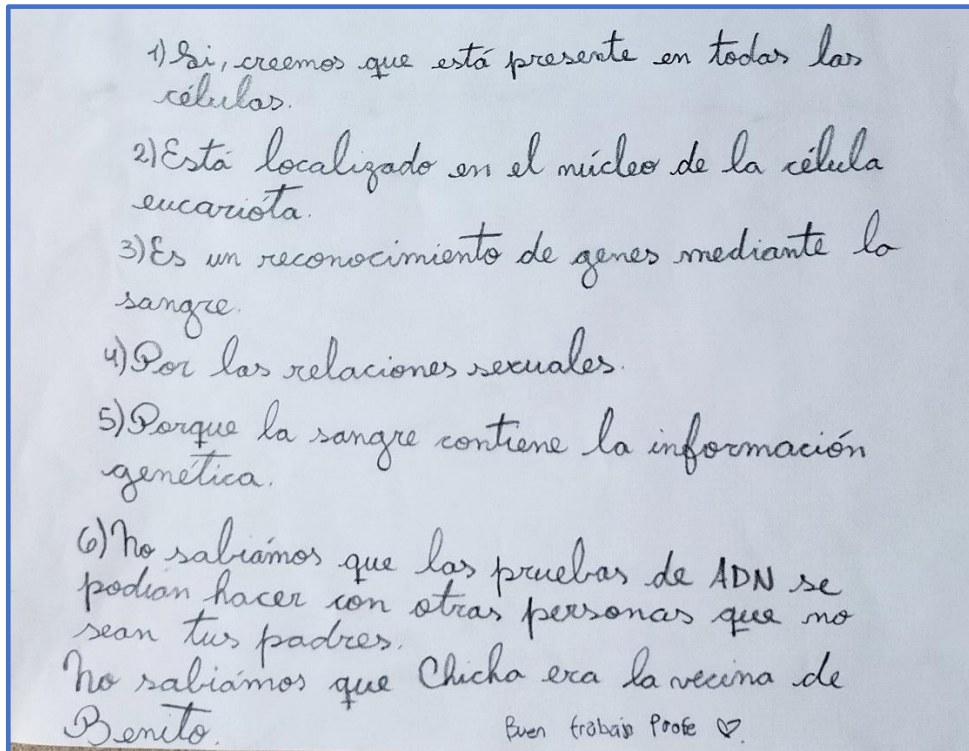 1) Si, creemos que está presente en todas las
células.
2) Está localizado en el núcleo de la célula
eucariota.
3) Es un reconocimiento de genes mediante la
sangre.
4) Por las relaciones sexuales.
5) Porque la sangre contiene la información
genética.
6) No sabíamos que las pruebas de ADN se
podían hacer con otras personas que no
sean tus padres.
No sabíamos que Chicha era la vecina de
Benito.
Buen trabajo Profe ♡.